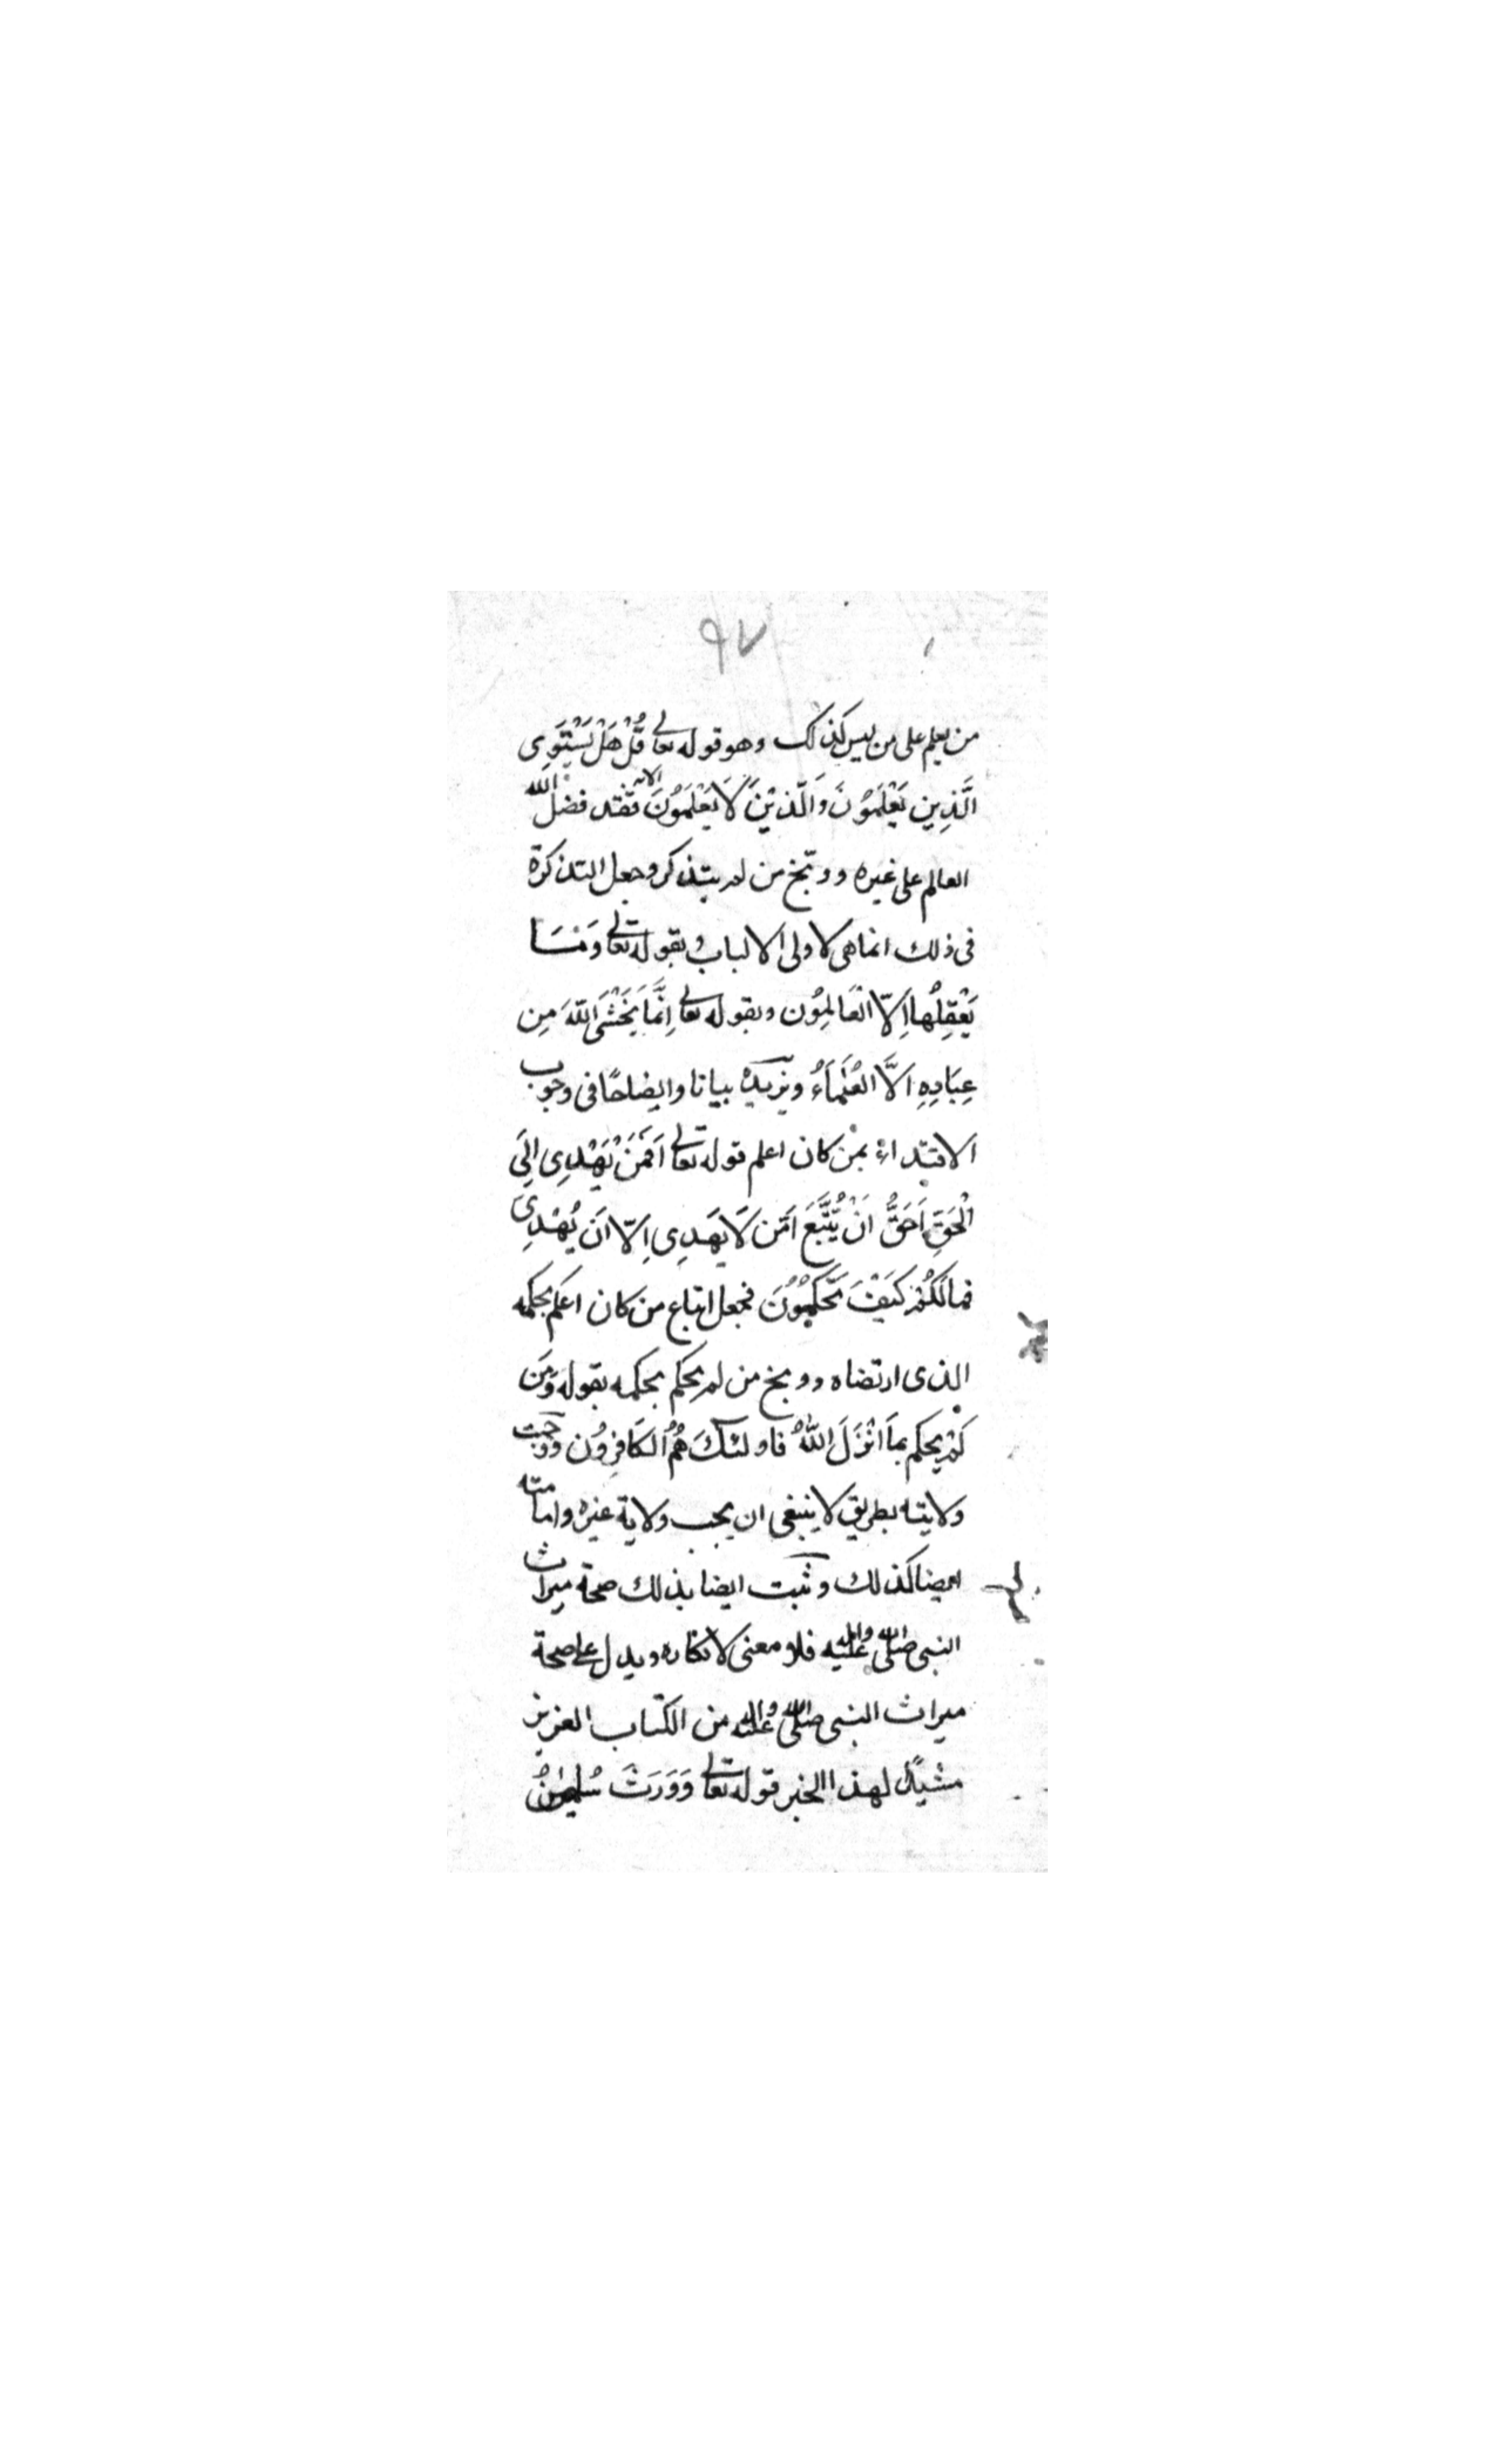 ٩٧
من يعلم على من ليس كذلك وهو قوله تعالى قُلْ هَلْ يَسْتَوِى
الَّذِين يَعْلَمُونَ وَالَّذيْنَ لَا يَعْلَمُونَ الآية فقد فضل الله
العالم على غيره ووبّخ من لم يتذكر وجعل التذكرة
فى ذلك انما هى لاولى الالباب وبقوله تعالى وَمَا
يَعْقِلُها اِلّا الْعَالِمُون وبقوله تعالى اِنَّمَا يَخْشَى اللّهَ مِن
عِبَادِهِ الَّا العُلَمَاءُ ونزيده بيانا وايضاحًا فى وجوب
الاقتداء بمن كان اعلم قوله تعالى اَفَمَنْ يَهْدِى اِلَى
الْحَقِّ اَحَقُّ انْ يُّتَّبَعَ اَمَّن لَا يَهَدِى اِلّا اَن يُهْدىَ
فمالَكُمْ كَيَفْ تَحَكُمُوُنَ فجعل اتباع من كان اعلم بحكمه
الذى ارتضاه ووبخ من لم يحكم بحكمه بقوله وَمَن
لَمْ يحكم بمَا انْزَلَ اللّهُ فاولئكَ هُمُ الكَافِروُن ووجبت
ولايته بطريق لا ينبغى ان يجب ولاية غيره وامامته
ايضا كذلك وثبت ايضا بذلك صحة ميراث
النبى صلى الله عليه واله فلا معنى لانكاره ويدل على صحة
ميراث النبى صلى الله عليه واله من الكتاب العزيز
مشيّدًا لهذا الخبر قوله تعالى وَوَرَثَ سُليمٰنُ